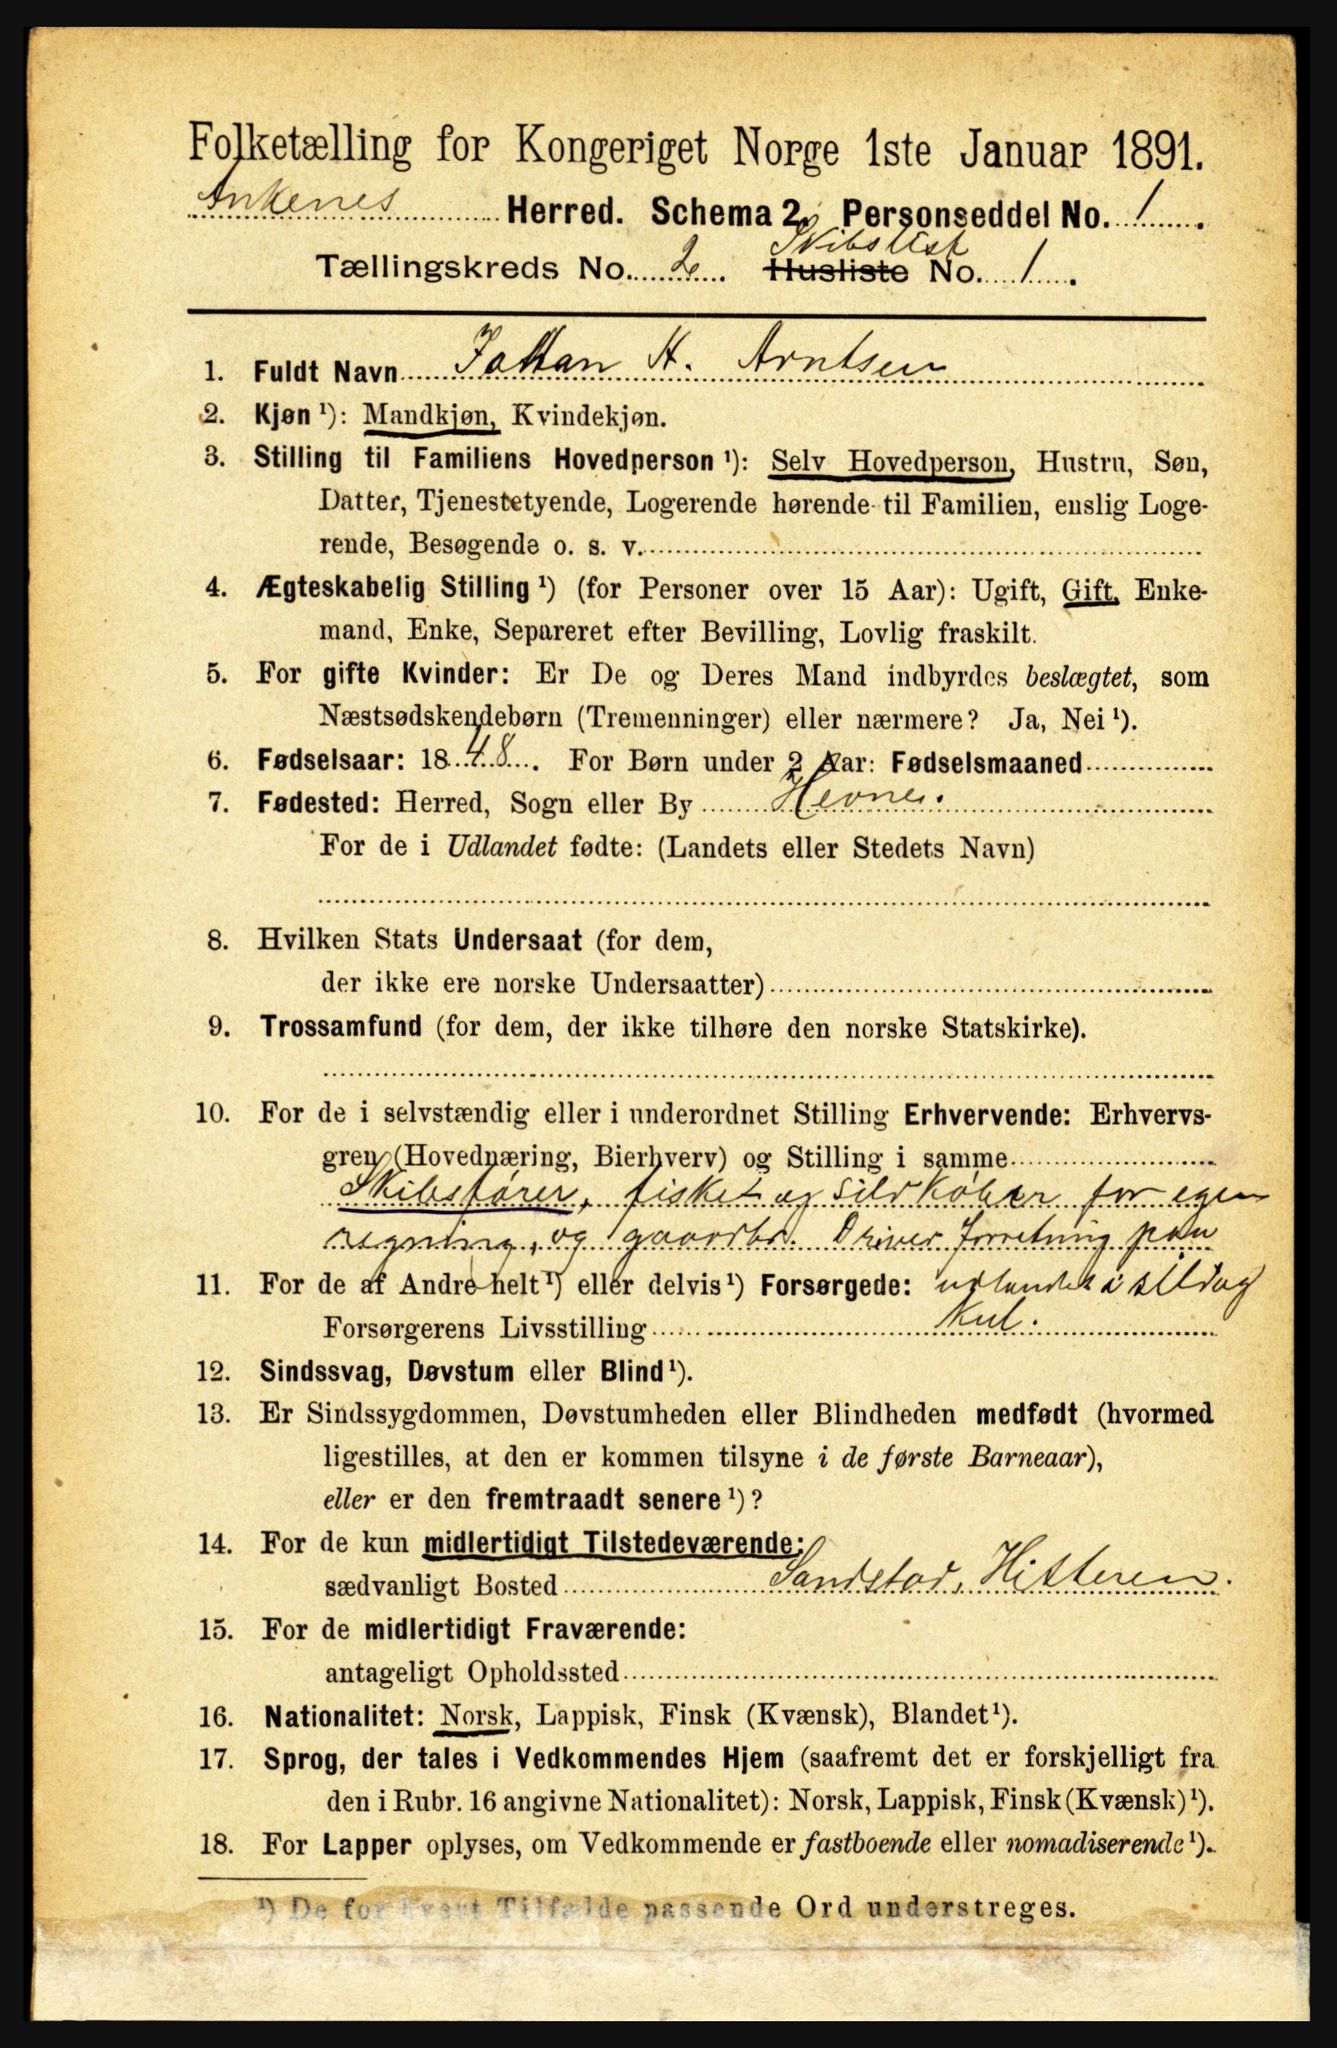 Folketælling for Kongeriget Norge 1ste Januar 1891.
Ankenes Herred. Schema 2. Personseddel No. 1.
Skibslist
Tællingskreds No. 2. Husliste No. 1.
1. Fuldt Navn Johan H. Arntsen
2. Kjøn ¹): Mandkjøn, Kvindekjøn.
3. Stilling til Familiens Hovedperson ¹): Selv Hovedperson, Hustru, Søn,
Datter, Tjenestetyende, Logerende hørende til Familien, enslig Loge-
rende, Besøgende o. s. v.
4. Ægteskabelig Stilling ¹) (for Personer over 15 Aar): Ugift, Gift, Enke-
mand, Enke, Separeret efter Bevilling, Lovlig fraskilt.
5. For gifte Kvinder: Er De og Deres Mand indbyrdes beslægtet, som
Næstsødskendebørn (Tremenninger) eller nærmere? Ja, Nei ¹).
6. Fødselsaar: 1848. For Børn under 2 Aar: Fødselsmaaned
7. Fødested: Herred, Sogn eller By Hevne.
For de i Udlandet fødte: (Landets eller Stedets Navn)
8. Hvilken Stats Undersaat (for dem,
der ikke ere norske Undersaatter)
9. Trossamfund (for dem, der ikke tilhøre den norske Statskirke).
10. For de i selvstændig eller i underordnet Stilling Erhvervende: Erhvervs-
gren (Hovednæring, Bierhverv) og Stilling i samme
Skibsfører, fiske og sildkøber for egen
regning, og gaardbr. Driver forretning paa
11. For de af Andre helt ¹) eller delvis ¹) Forsørgede: udlandet i sild og
Forsørgerens Livsstilling kul.
12. Sindssvag, Døvstum eller Blind ¹).
13. Er Sindssygdommen, Døvstumheden eller Blindheden medfødt (hvormed
ligestilles, at den er kommen tilsyne i de første Barneaar),
eller er den fremtraadt senere ¹)?
14. For de kun midlertidigt Tilstedeværende:
sædvanligt Bosted Sandstad, Hitteren.
15. For de midlertidigt Fraværende:
antageligt Opholdssted
16. Nationalitet: Norsk, Lappisk, Finsk (Kvænsk), Blandet ¹).
17. Sprog, der tales i Vedkommendes Hjem (saafremt det er forskjelligt fra
den i Rubr. 16 angivne Nationalitet): Norsk, Lappisk, Finsk (Kvænsk) ¹).
18. For Lapper oplyses, om Vedkommende er fastboende eller nomadiserende ¹).
¹) De for hvert Tilfælde passende Ord understreges.